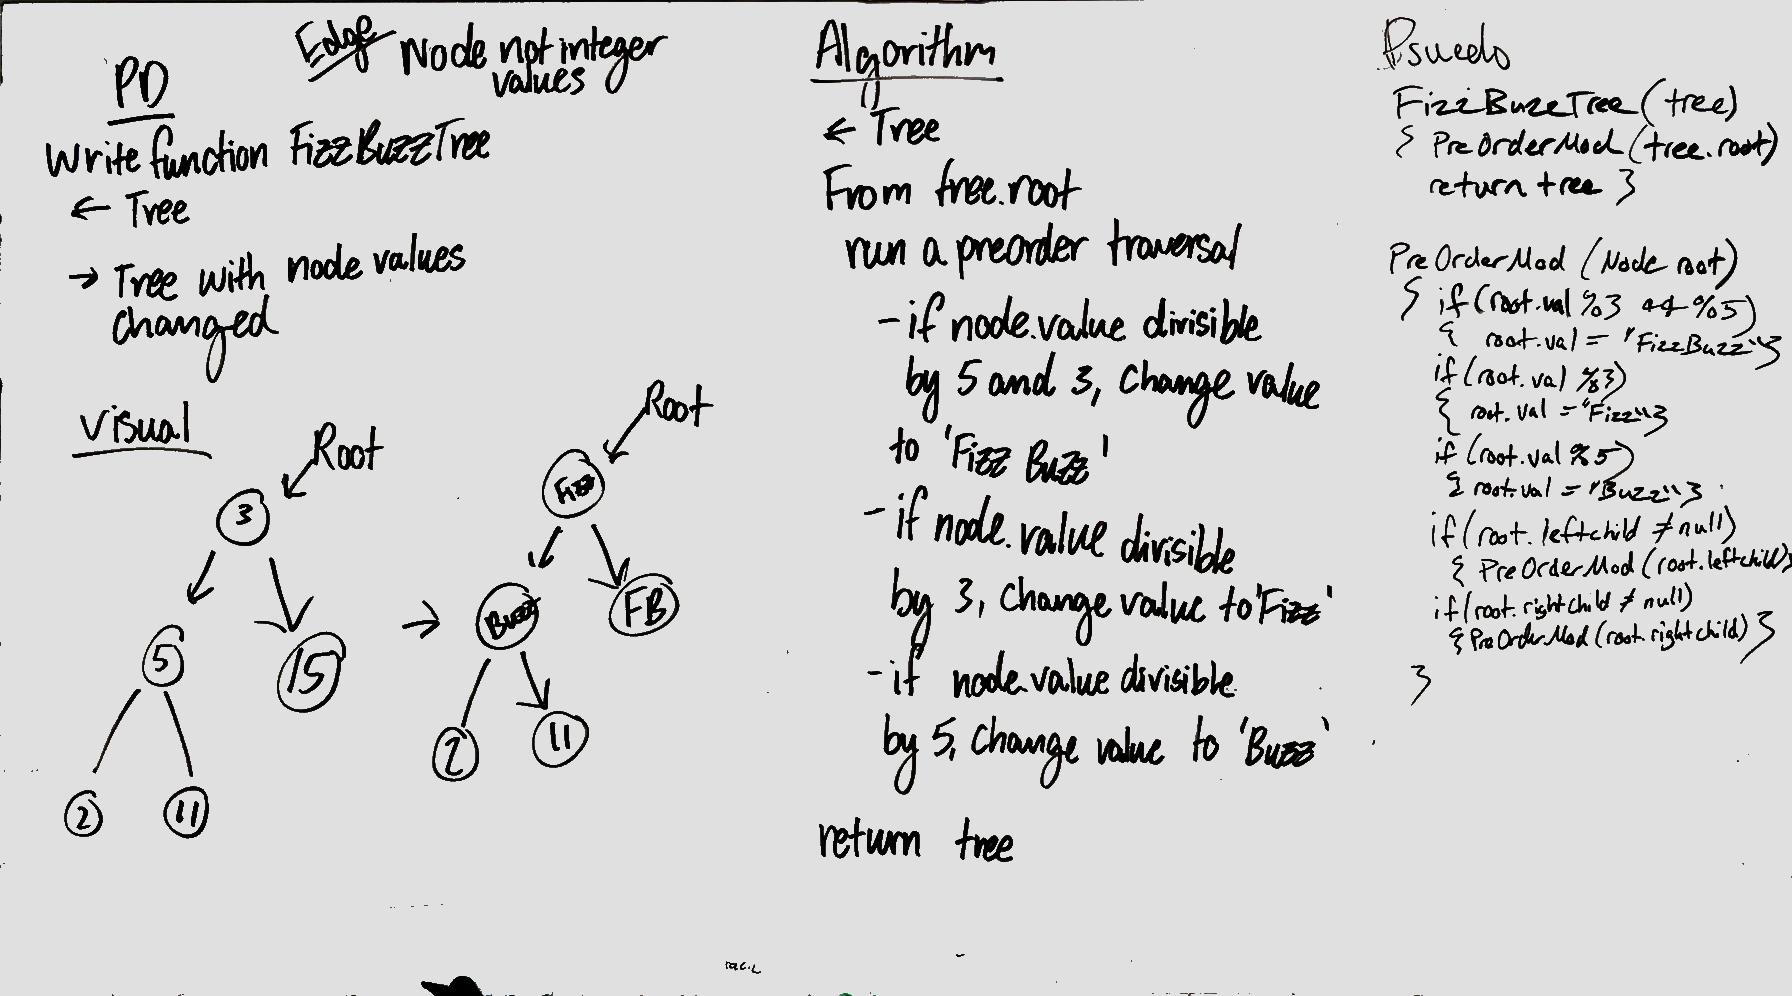 PD
Write function FizzBuzzTree
← Tree
→ Tree with node values
changed
Edge Node not integer
values
Visual
Root
3
5
15
2
11
→
Root
Fizz
Buzz
FB
2
11
Algorithm
← Tree
From tree.root
run a preorder traversal
- if node.value divisible
by 5 and 3, Change value
to 'Fizz Buzz'
- if node.value divisible
by 3, Change value to 'Fizz'
- if node.value divisible
by 5, Change value to 'Buzz'
return tree
Psuedo
FizzBuzzTree (tree)
{ PreOrderMod (tree.root)
return tree }
PreOrderMod (Node root)
{ if (root.val %3 && %5)
{ root.val = "FizzBuzz" }
if (root.val %3)
{ root.val = "Fizz" }
if (root.val %5)
{ root.val = "Buzz" }
if (root.leftchild ≠ null)
{ PreOrderMod (root.leftchild)
if (root.rightchild ≠ null)
{ PreOrderMod (root.rightchild) }
}